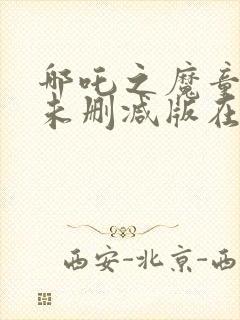 哪吒之魔童
未删减版在
西安-北京-西